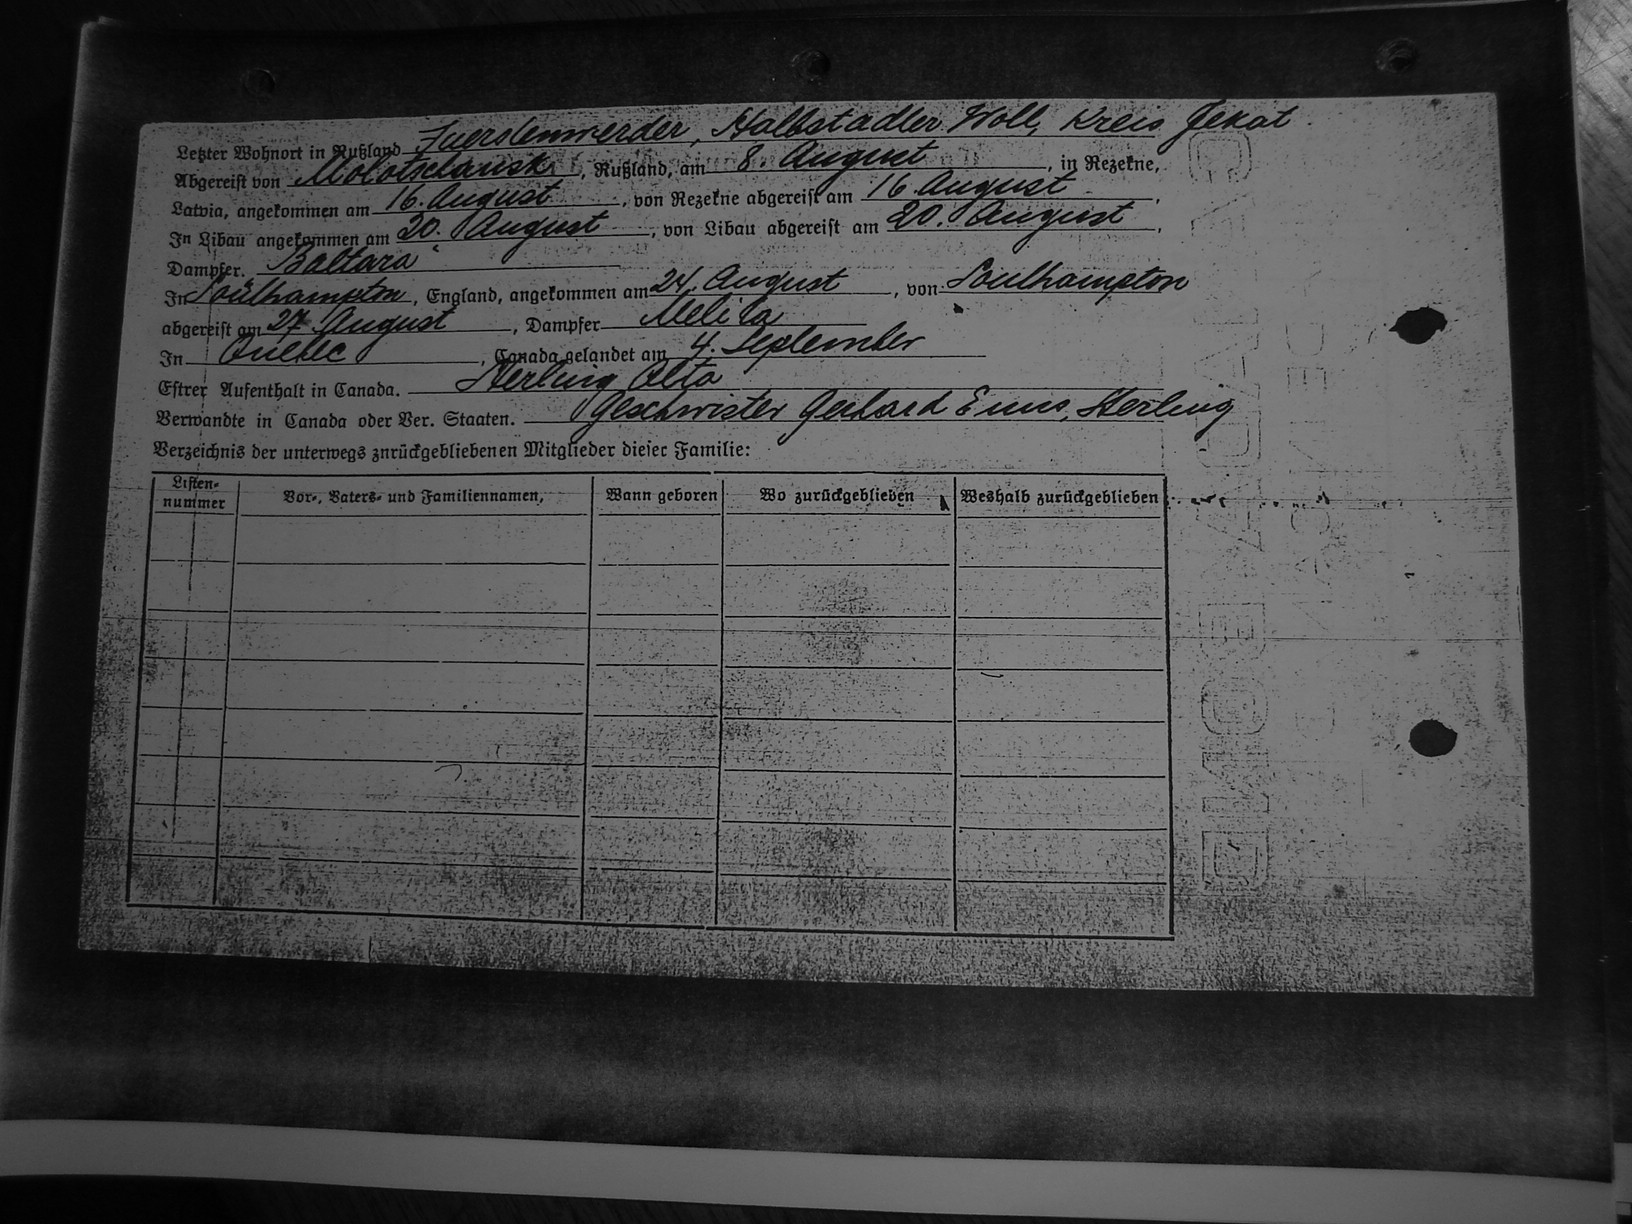 Letzter Wohnort in Rußland Fuerstenwerder, Halbstadter Woll, Kreis Jekat
Abgereist von Molotschansk, Rußland, am 8. August, in Rezekne,
Latvia, angekommen am 16. August, von Rezekne abgereist am 16. August.
In Libau angekommen am 20. August, von Libau abgereist am 20. August,
Dampfer. Baltara
In Southampton, England, angekommen am 24. August, von Southampton
abgereist am 27. August, Dampfer Melita
In Quebec, Canada gelandet am 4. September
Estrer Aufenthalt in Canada. Sterling Alta
Verwandte in Canada oder Ver. Staaten. Geschwister Gerhard Enns, Sterling
Verzeichnis der unterwegs znrückgebliebenen Mitglieder dieser Familie:
Listen-nummer Vor-, Vaters- und Familiennamen, Wann geboren Wo zurückgeblieben Weshalb zurückgeblieben